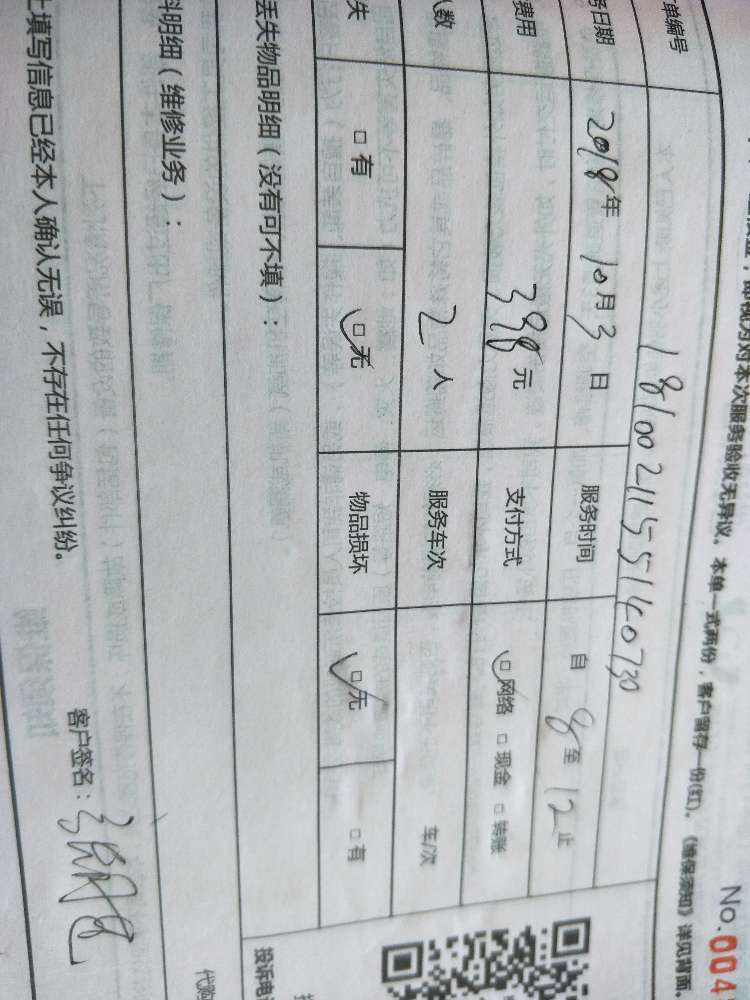 视为对本次服务验收无异议。本单一式两份，客户留存一份(红)。《维保须知》详见背面。
No.004
单编号 181002115514 0730
务日期 2018年10月3日 服务时间 自 8 至 12 止
费用 398元 支付方式 ☑网络 □现金 □转账
人数 2人 服务车次 车/次
失 □有 ☑无 物品损坏 ☑无 □有
丢失物品明细（没有可不填）：
料明细（维修业务）：
上填写信息已经本人确认无误，不存在任何争议纠纷。
客户签名：
投诉电
代购